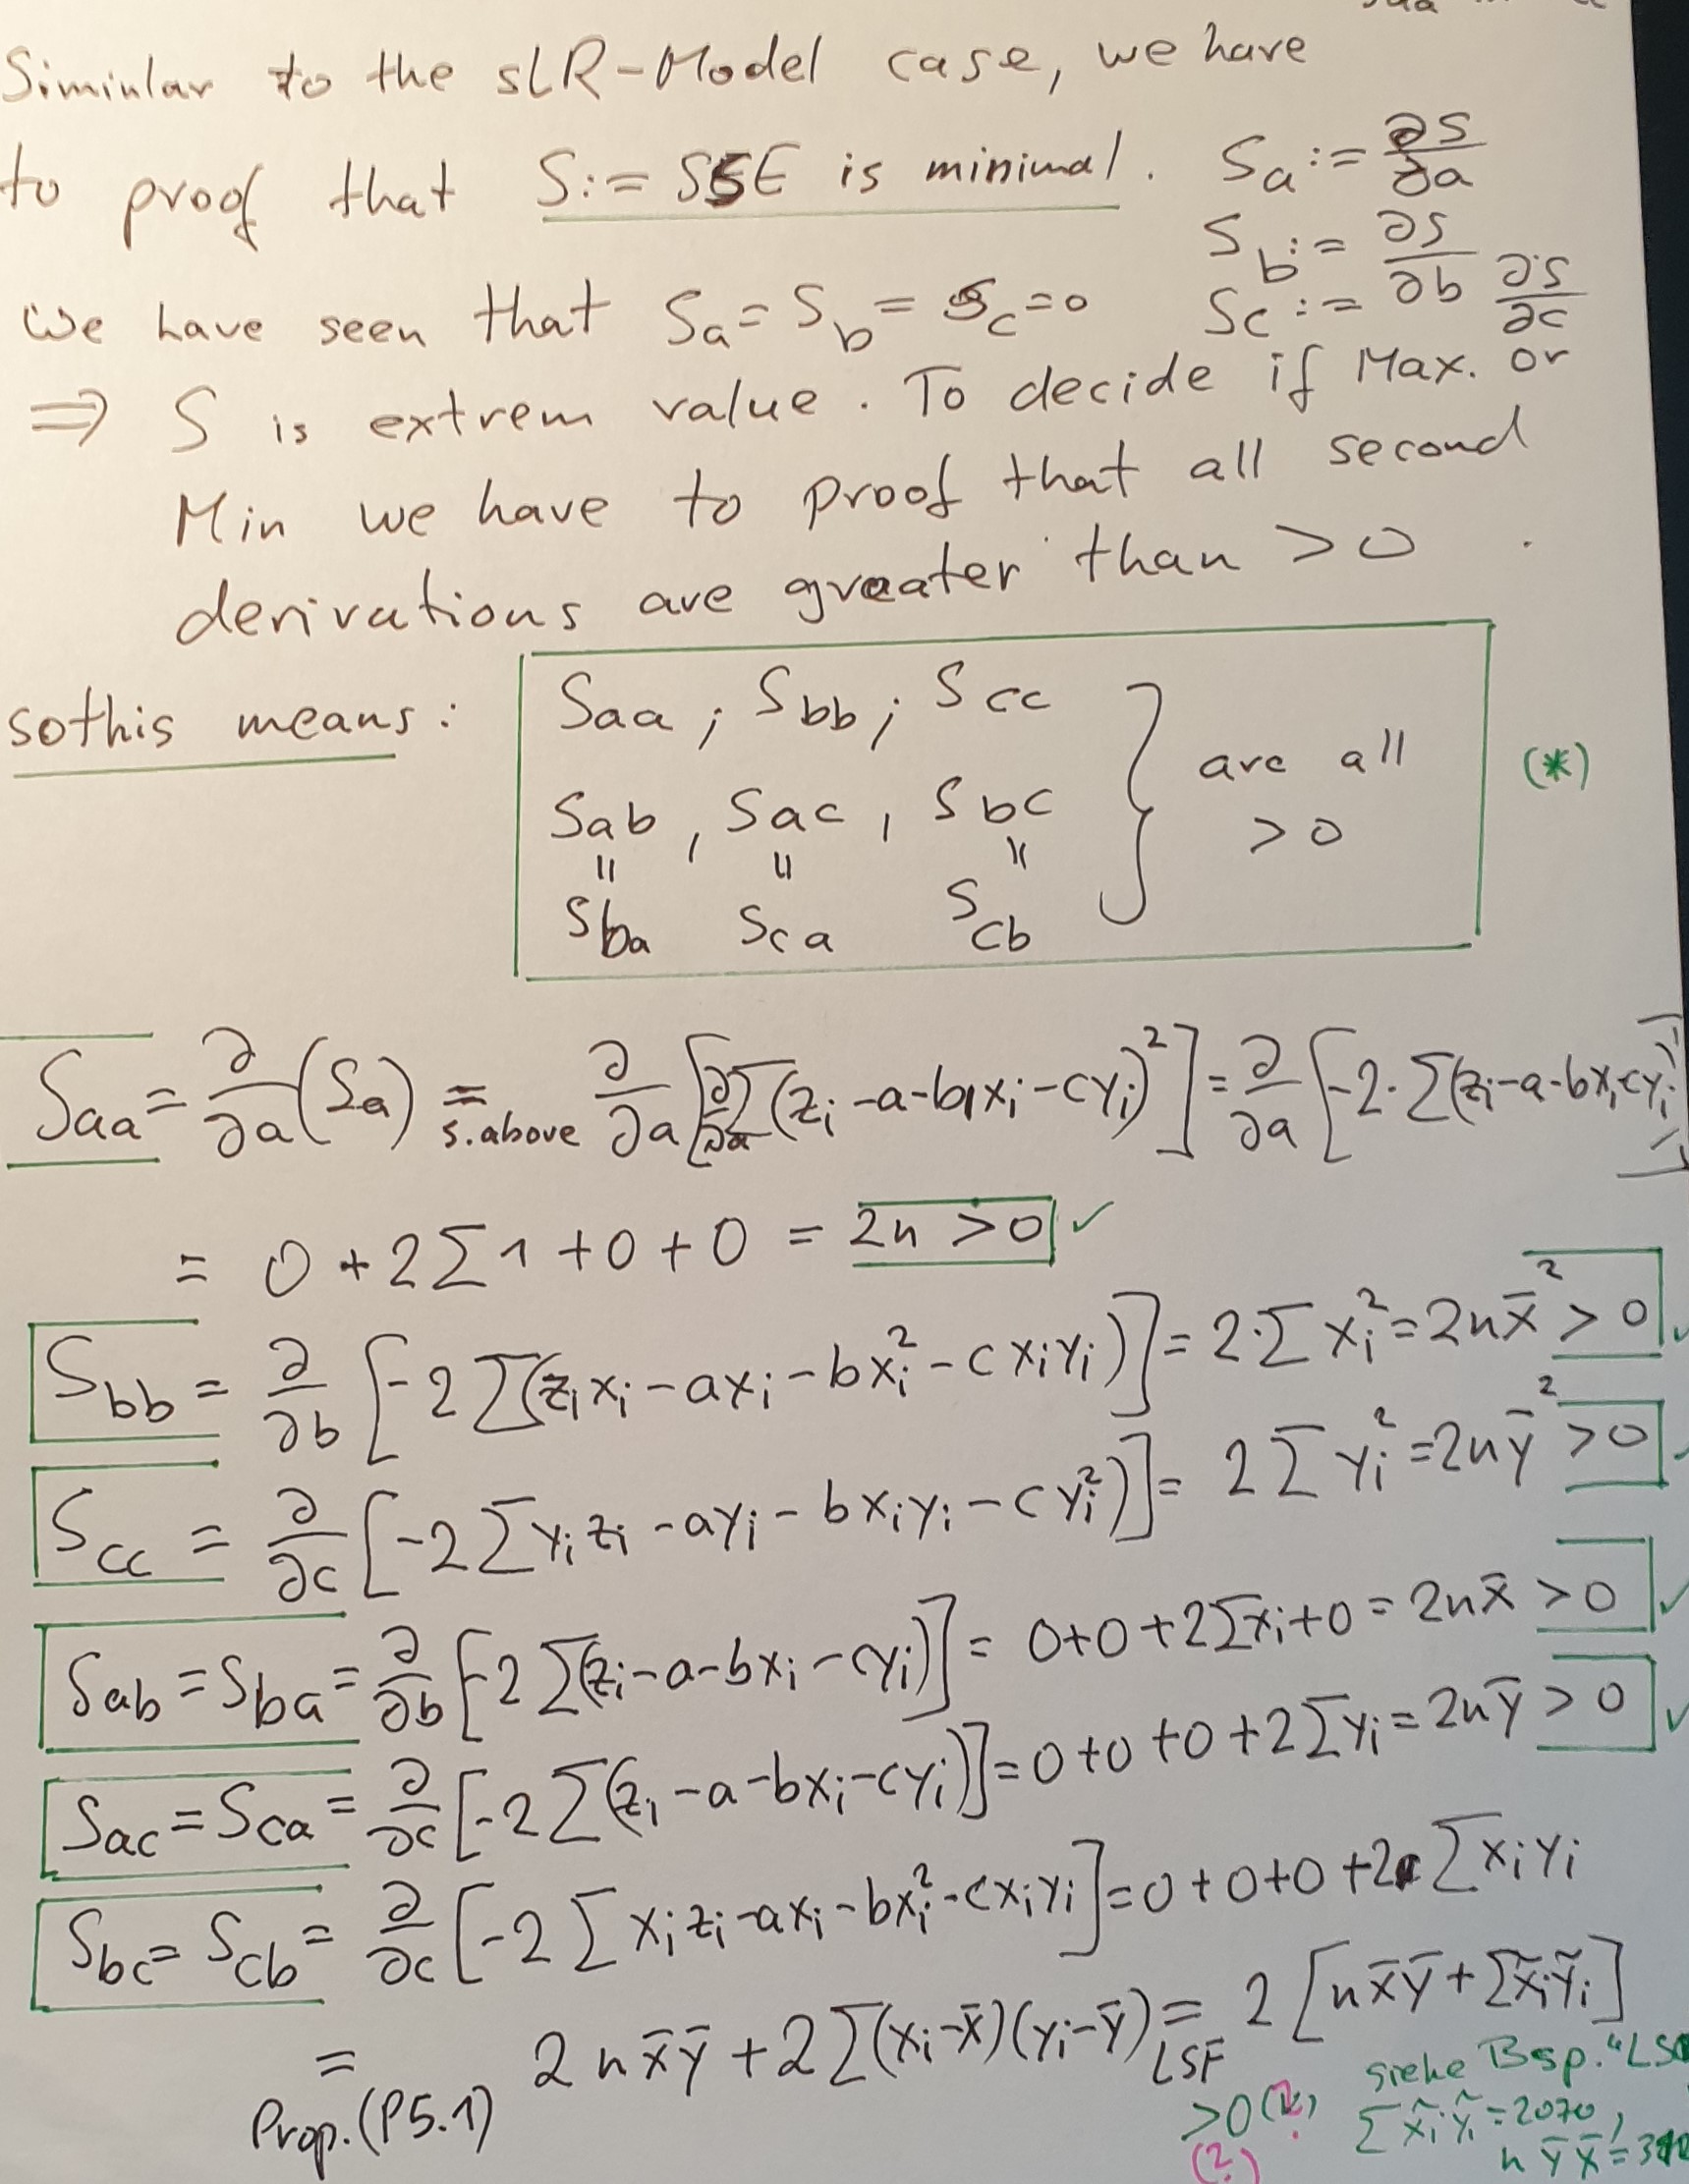 Siminlar to the sLR-Model case, we have
to proof that S := SSE is minimal. Sa := ∂S/∂a
Sb := ∂S/∂b
we have seen that Sa = Sb = Sc = 0 Sc := ∂S/∂c
⇒ S is extrem value. To decide if Max. or
Min we have to proof that all second
derivations are greater than > 0
sothis means: Saa ; Sbb ; Scc
Sab , Sac , Sbc } are all > 0 (*)
= = =
Sba Sca Scb
Saa = ∂/∂a (Sa) = s.above ∂/∂a [∂/∂a Σ(zi - a - bxi - cyi)²] = ∂/∂a [-2·Σ(zi - a - bxi - cyi)]
= 0 + 2Σ1 + 0 + 0 = 2n > 0 ✓
Sbb = ∂/∂b [-2Σ(zixi - axi - bxi² - cxiyi)] = 2·Σxi² = 2nx̄² > 0 ✓
Scc = ∂/∂c [-2Σyizi - ayi - bxiyi - cyi²)] = 2Σyi² = 2nȳ² > 0 ✓
Sab = Sba = ∂/∂b [-2Σ(zi - a - bxi - cyi)] = 0+0+2Σxi+0 = 2nx̄ > 0 ✓
Sac = Sca = ∂/∂c [-2Σ(zi - a - bxi - cyi)] = 0+0+0+2Σyi = 2nȳ > 0 ✓
Sbc = Scb = ∂/∂c [-2Σxizi - axi - bxi² - cxiyi] = 0+0+0+2Σxiyi
= Prop.(P5.1) 2nx̄ȳ + 2Σ(xi-x̄)(yi-ȳ) = LSF 2[nx̄ȳ + Σx̃iỹi]
siehe Bsp. "LS
>0 (?) Σx̃iỹi = 2070,
(?) nȳx̄ =